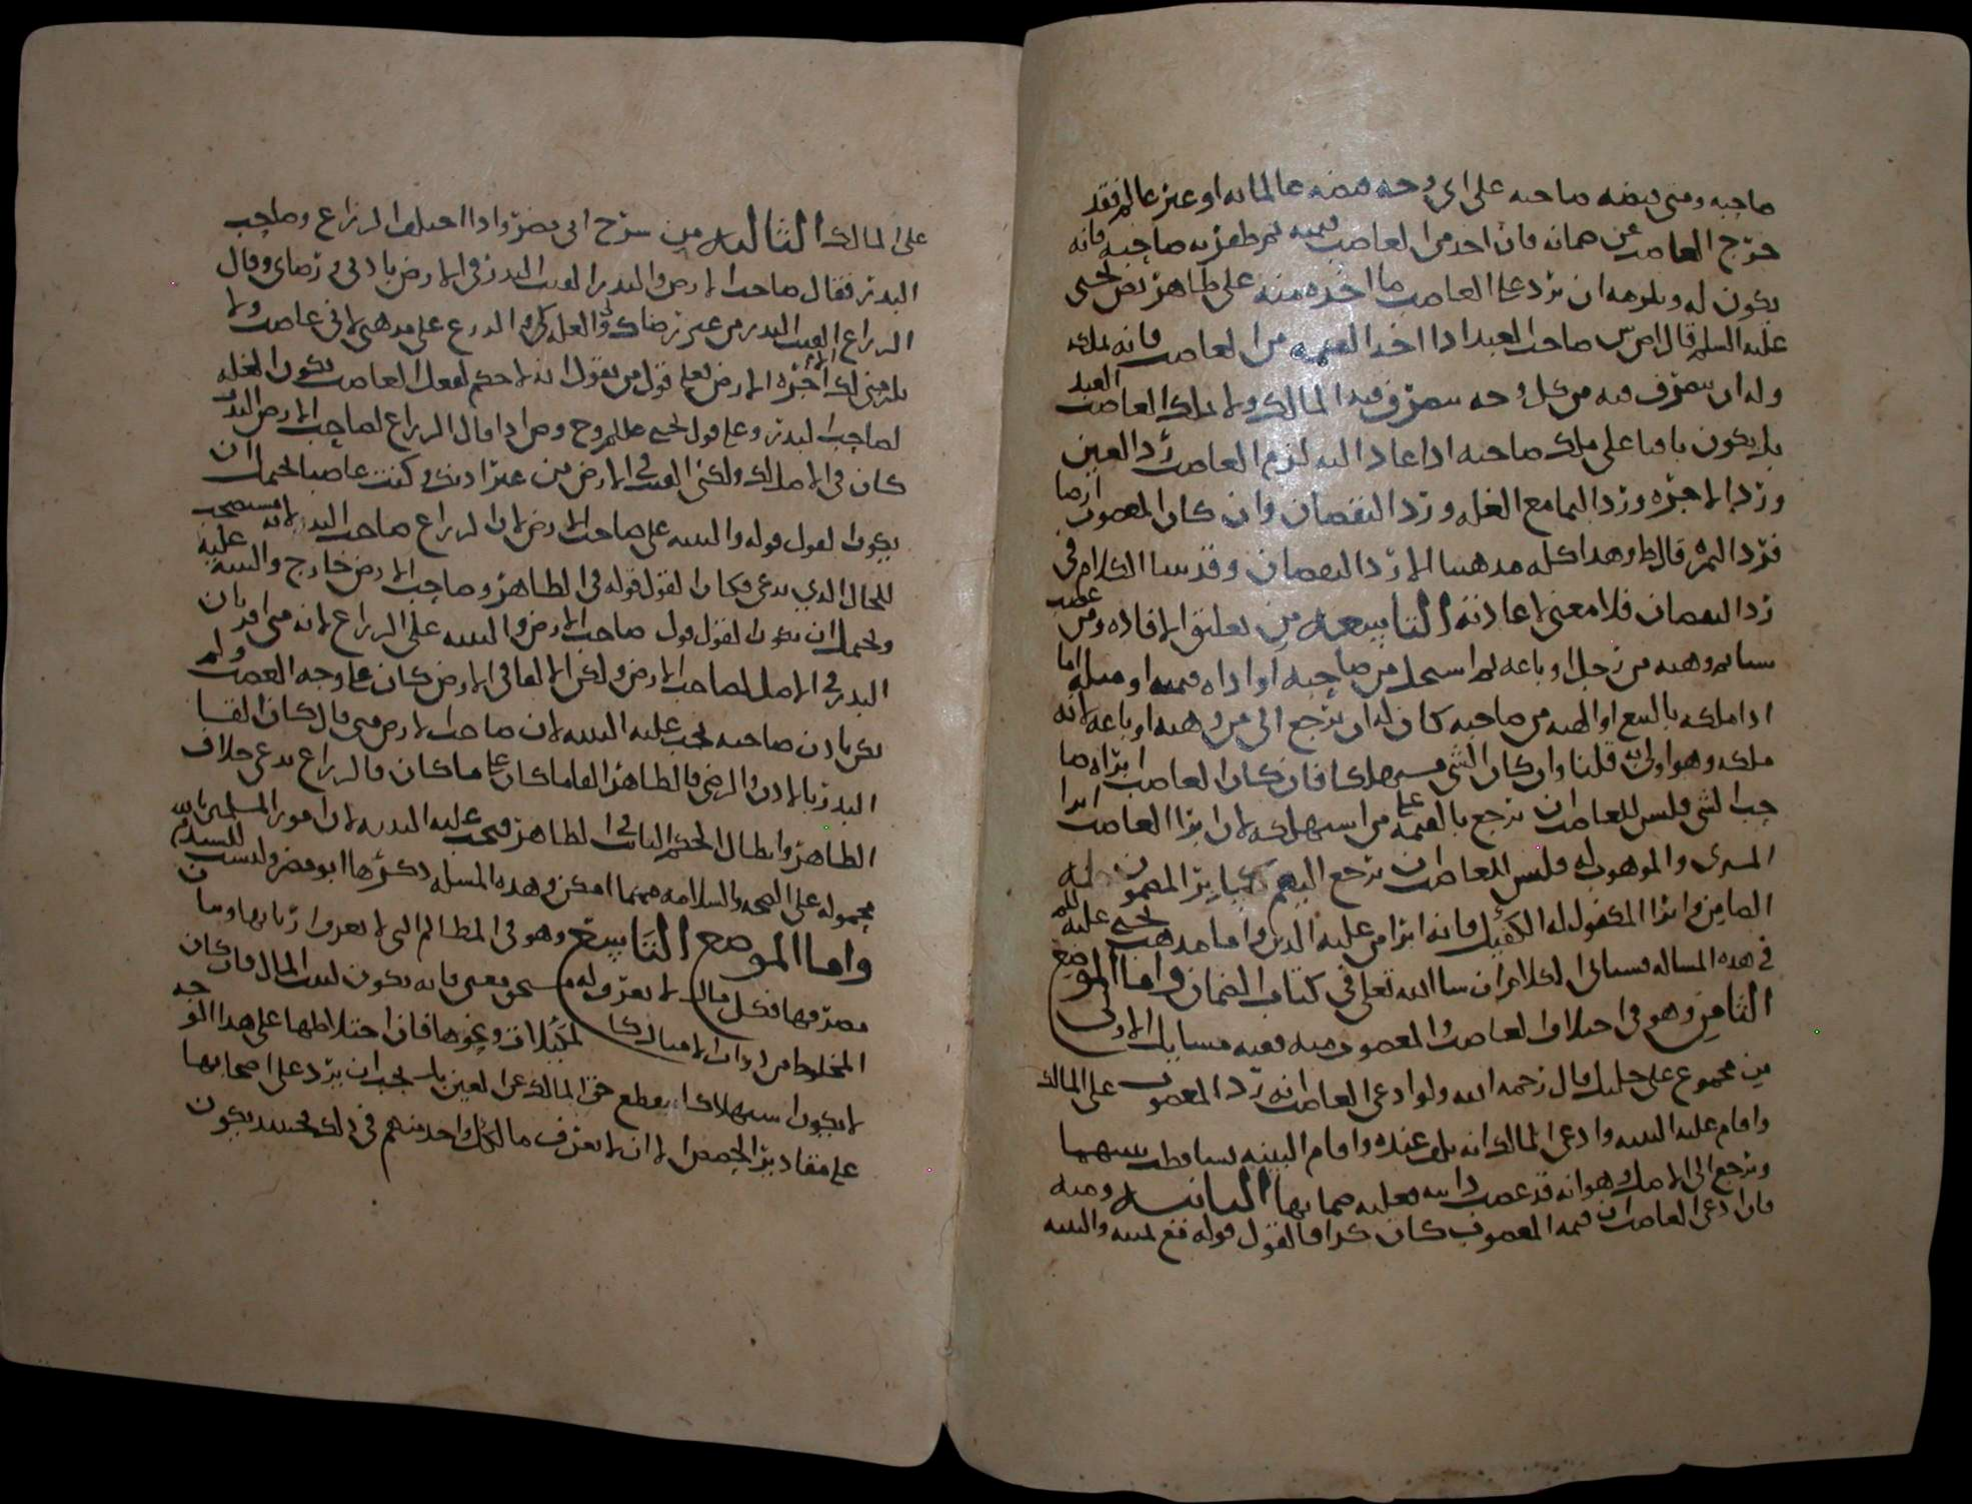 صاحبه ومتى قبضه صاحبه على اي وجه قبضه عالما به او غير عالم فقد
خرج الغاصب عن ضمانه فان اخذ من الغاصب قيمته ثم ظفر به صاحبه فانه
يكون له ويلزمه ان يرد على الغاصب ما اخذه منه على ظاهر نص يحيى
عليه السلم قال صاحب العبد اذا اخذ القيمه من الغاصب فانه يملكه
وله ان يتصرف فيه من كل وجه يتصرف فيه المالك ولا يملك الغاصب العبد
بل يكون باقيا على ملك صاحبه اذا عاد اليه لزم الغاصب رد العين
ورد الاجره ورد النما مع الغله ورد النقصان وان كان المغصوب ارضا
فرد الثمره قال ط وهذا كله مذهبنا الا رد النقصان وقد بينا الكلام في
رد النقصان فلا معنى لاعادته التاسعه من تعليق الافاده ومن غصب
شيا ثم وهبه من رجل او باعه ثم استحل من صاحبه او اداه قيمته او مثله اما
اذا ملكه بالبيع او الهبه من صاحبه كان له ان يرجع الى من وهبه او باعه لانه
ملكه وهو اولى به قلنا وان كان الشي مستهلكا فان كان الغاصب ابراه صا
حب الشي فليس للغاصب ان يرجع بالقيمه على من استهلكه لان ابرا الغاصب ابرا
المشترى والموهوب له فليس للغاصب ان يرجع اليهم كما يبرا المضمون
الضامن وابرا المكفول له الكفيل فانه ابرا من عليه الدين واما مذهب يحيى عليه السلم
في هذه المساله فسياتي الكلام ان شا الله تعلى في كتاب الضمان واما الموضع
الثامن وهو في اختلاف الغاصب والمغصوب منه ففيه مسايل الاولى
من مجموع على خليل قال رحمه الله ولو ادعى الغاصب انه رد المغصوب على المالك
واقام عليه البينه وادعى المالك انه تلف عنده واقام البينه تساقطت بينتهما
ويرجع الى الاصل وهو انه قد غصب دابته فعليه ضمانها الثانيه ومنه
فان ادعى الغاصب ان قيمه المغصوب كان كذا فالقول قوله مع يمينه والبينه
على المالك الثالثه من شرح ابي مضر واذا اختلف الزراع وصاحب
البذر فقال صاحب الارض والبذر القيت البذر في الارض باذني ورضاي وقال
الزراع القيت البذر من غير رضاك والغله لي والزرع على مذهبي لاني غاصب ولا
يلزمني لك الا اجره الارض فعلى قول من يقول انه لا حكم لفعل الغاصب يكون الغله
لصاحب البذر وعلى قول يحيى وص اذا قال الزراع لصاحب الارض البذر
كان في الاصل لك ولكني القيت في الارض من غير اذنك وكنت غاصبا يحتمل ان
يكون القول قوله والبينه على صاحب الارض لان الزراع صاحب البذر لانه مستصحب
للحال الذي يدعى فكان القول قوله في الظاهر وصاحب الارض خارج والبينه عليه
ويحتمل ان يكون القول قول صاحب الارض والبينه على الزراع لانه متى اقر بان
البذر في الاصل لصاحب الارض ولكن الالقا في الارض كان على وجه الغصب ولم
يكن باذن صاحبه يجب عليه البينه لان صاحب الارض متى قال كان القا
البذر بالاذن والرضى فالظاهر القا ما كان على ما كان فالزراع يدعى خلاف
الظاهر وابطال الحكم الثابت في الظاهر فيجب عليه البينه لان امور المسلمين
محموله على الصحه والسلامه مهما امكن وهذه المسله ذكرها ابو مضر وليست للسيد م
واما الموضع التاسع وهو في المظالم التي لا يعرف اربابها وبيان
مصرفها فكل مال لا يعرف له مستحق معين فانه يكون لبيت المال فان كان
المختلط من ذوات الامثال كالمكيلات ونحوها فان اختلاطها على هذا الوجه
لا يكون استهلاكا يقطع حق المالك عن العين بل يجب ان يرد على اصحابها
على مقادير الحصص الا ان لا يعرف ما لكل واحد منهم في ذلك فحينئذ يكون